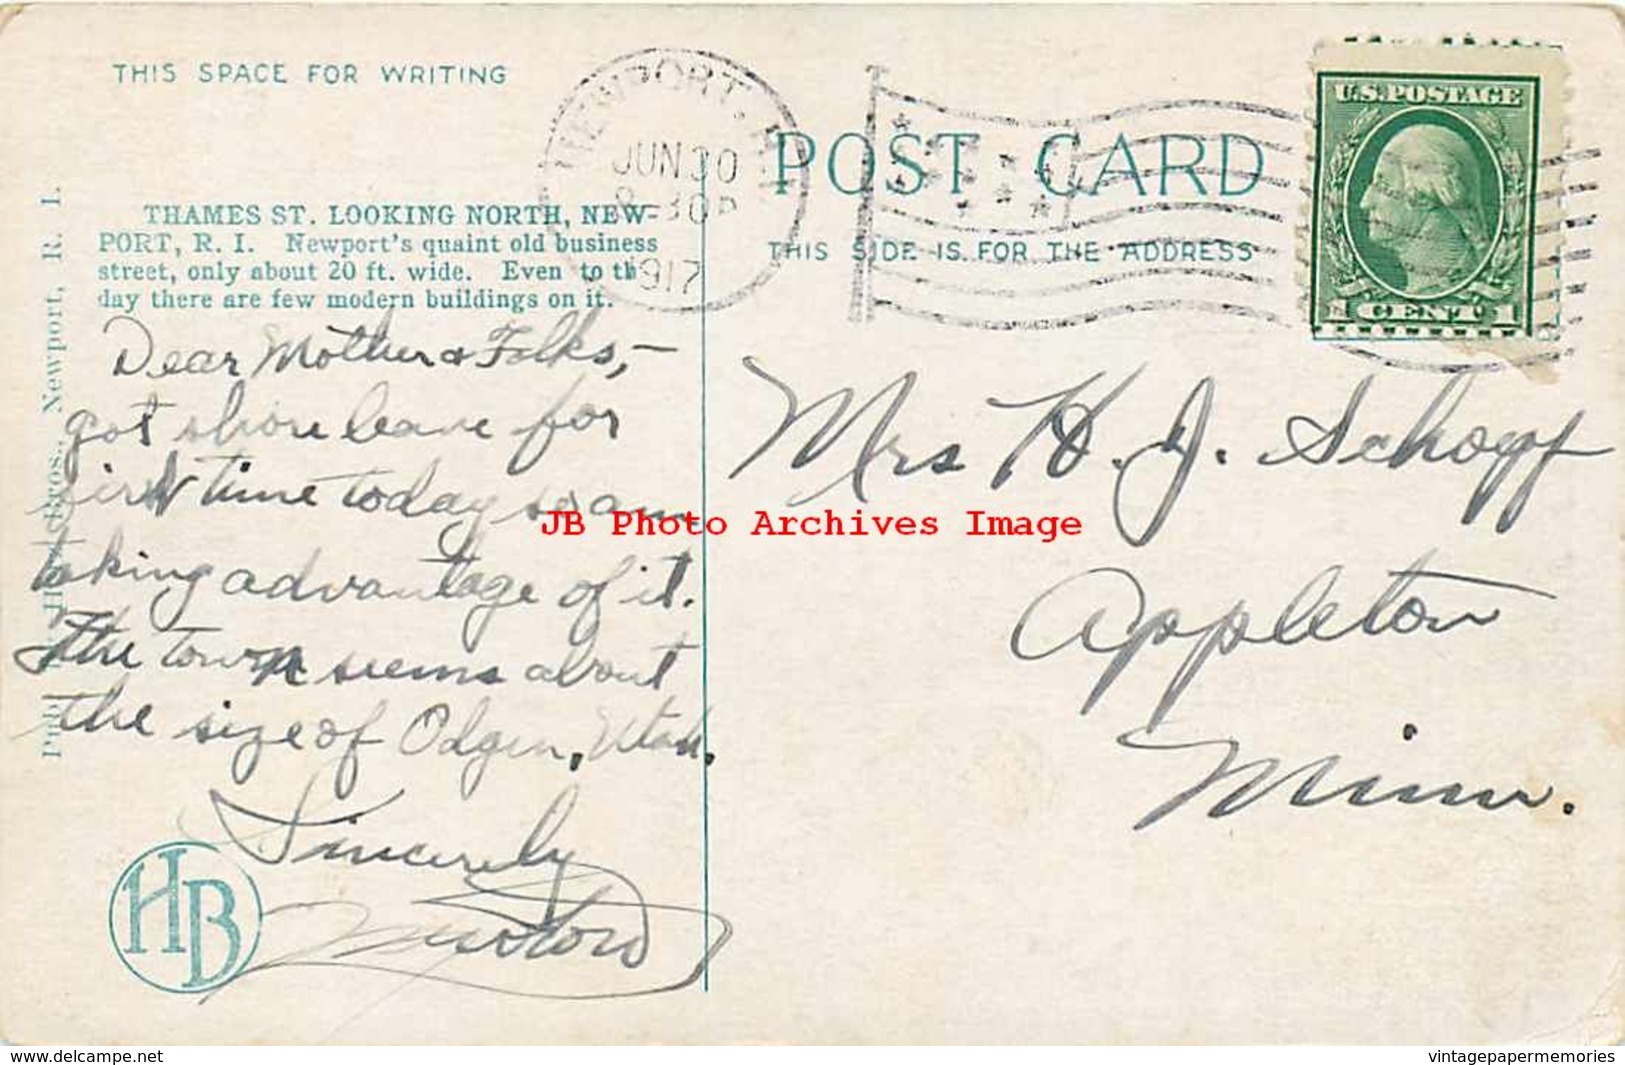 THIS SPACE FOR WRITING
NEWPORT, R.I.
JUN 30
8-30P
1917
POST CARD
THIS SIDE IS FOR THE ADDRESS
U.S.POSTAGE
1 CENT 1
THAMES ST. LOOKING NORTH, NEW-
PORT, R. I. Newport's quaint old business
street, only about 20 ft. wide. Even to th
day there are few modern buildings on it.
Bros., Newport, R. I.
Dear Mother & Folks,—
got shore leave for
first time today so am
taking advantage of it.
The town seems about
the size of Odgen, Utah.
Sincerely
HB
Mrs H. J. Schopf
Appleton
Minn.
JB Photo Archives Image
www.delcampe.net
vintagepapermemories